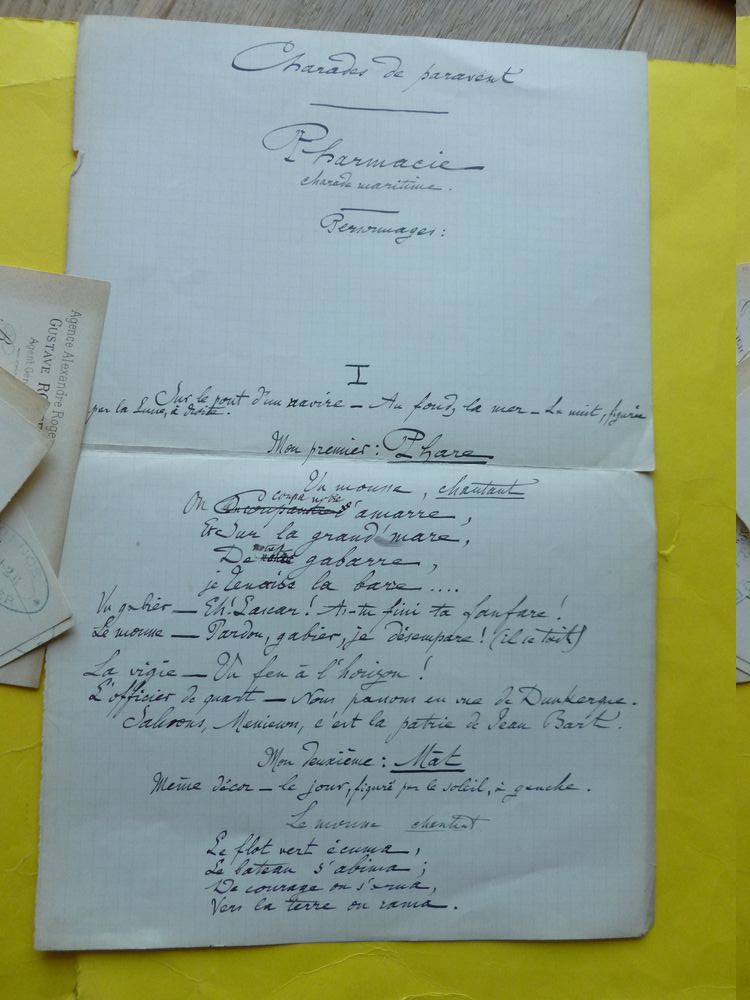 Charades de paravent
Pharmacie
charade maritime.
Personnages:
I
Sur le pont d'un navire – Au fond, la mer – La nuit, figurée
par la Lune, à droite.
Mon premier: Phare
Un mousse, chantant
On coupa notre l'amarre,
Et sur la grand' mare,
De gabarre,
je tenais la bare ....
Un gabier – Eh! Lascar! As-tu fini ta fanfare!
Le mousse – Pardon, gabier, je désempare! (il se tait)
La vigie – Un feu à l'horizon!
L'officier de quart – Nous passons en vue de Dunkerque.
Saluons, Messieurs, c'est la patrie de Jean Bart.
Mon deuxième: Mât
Même décor – le jour, figuré par le soleil, à gauche.
Le mousse chantant
Le flot vert écuma,
Le bateau s'abima;
De courage on s'arma,
Vers la terre on rama.
Agence Alexandre Roger
GUSTAVE RO
Agent Gén